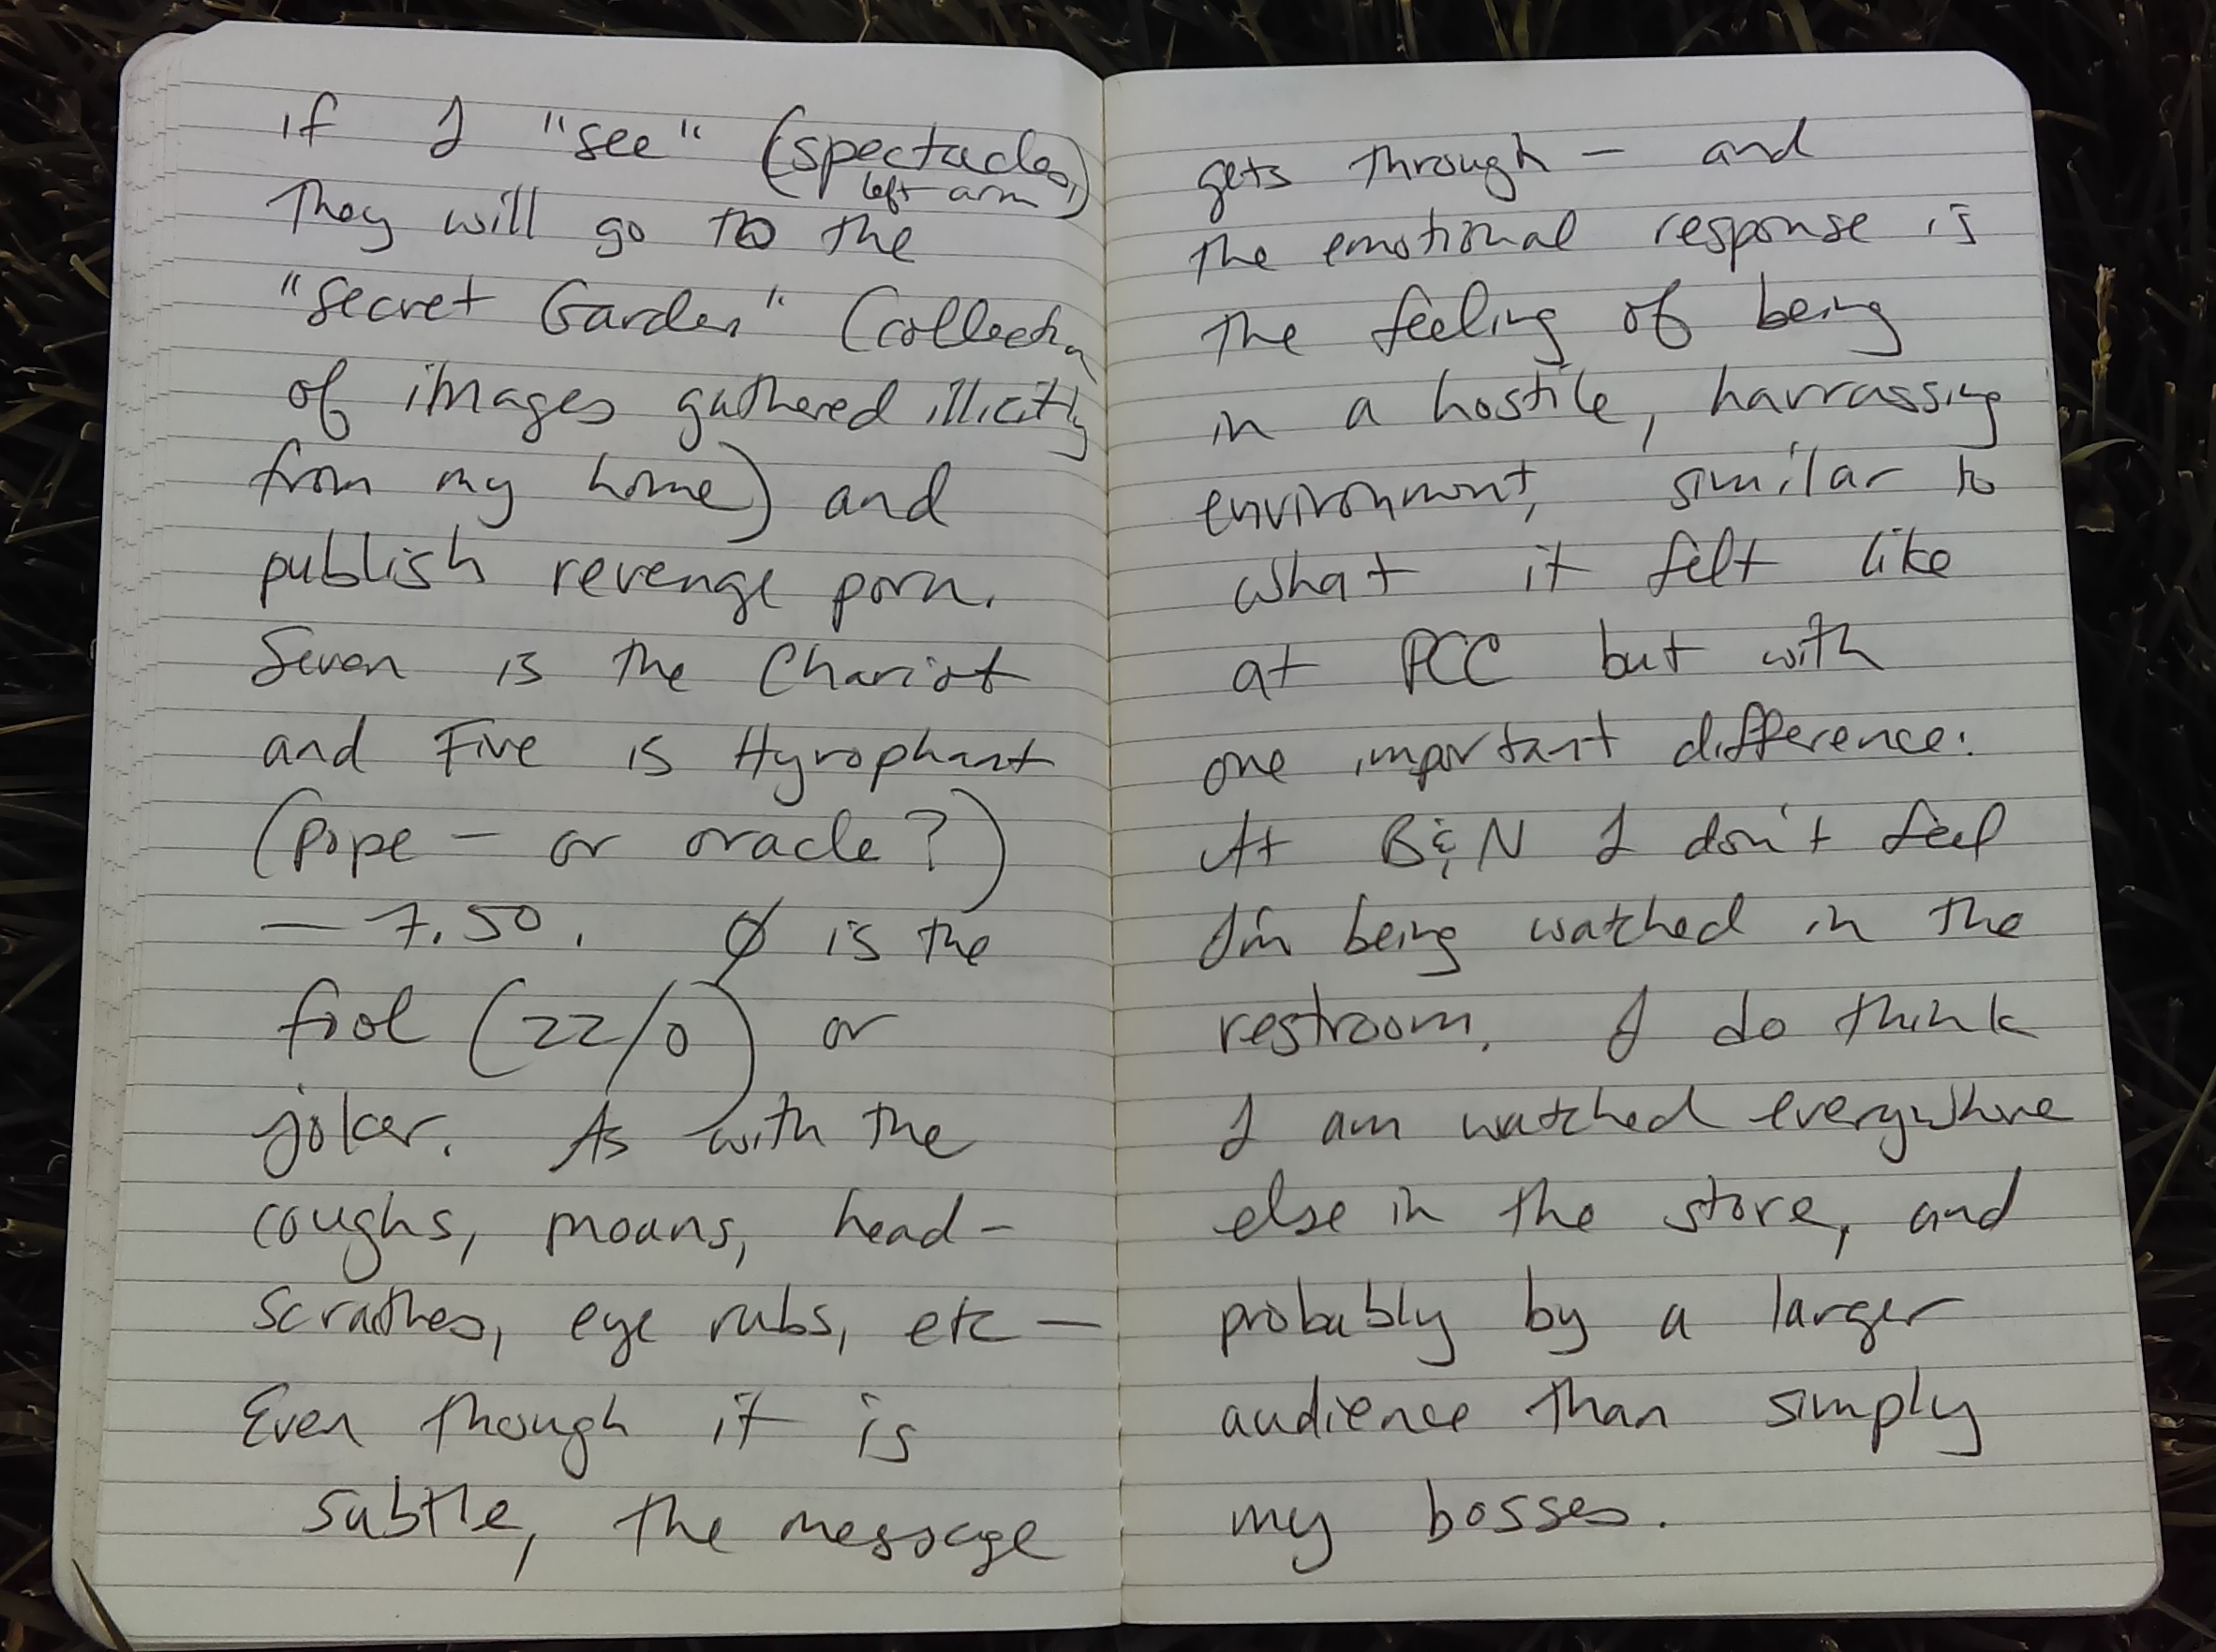 if I "see" (spectacles,
left arm)
they will go to the
"Secret Garden" (collection
of images gathered illicitly
from my home) and
publish revenge porn.
Seven is the Chariot
and Five is Hyrophant
(pope – or oracle?)
— 7.50. Ø is the
fool (22/0) or
joker. As with the
coughs, moans, head-
scratches, eye rubs, etc —
Even though it is
subtle, the message
gets through — and
the emotional response is
the feeling of being
in a hostile, harrassing
environment, similar to
what it felt like
at PCC but with
one important difference:
At B&N I don't feel
I'm being watched in the
restroom. I do think
I am watched everywhere
else in the store, and
probably by a larger
audience than simply
my bosses.